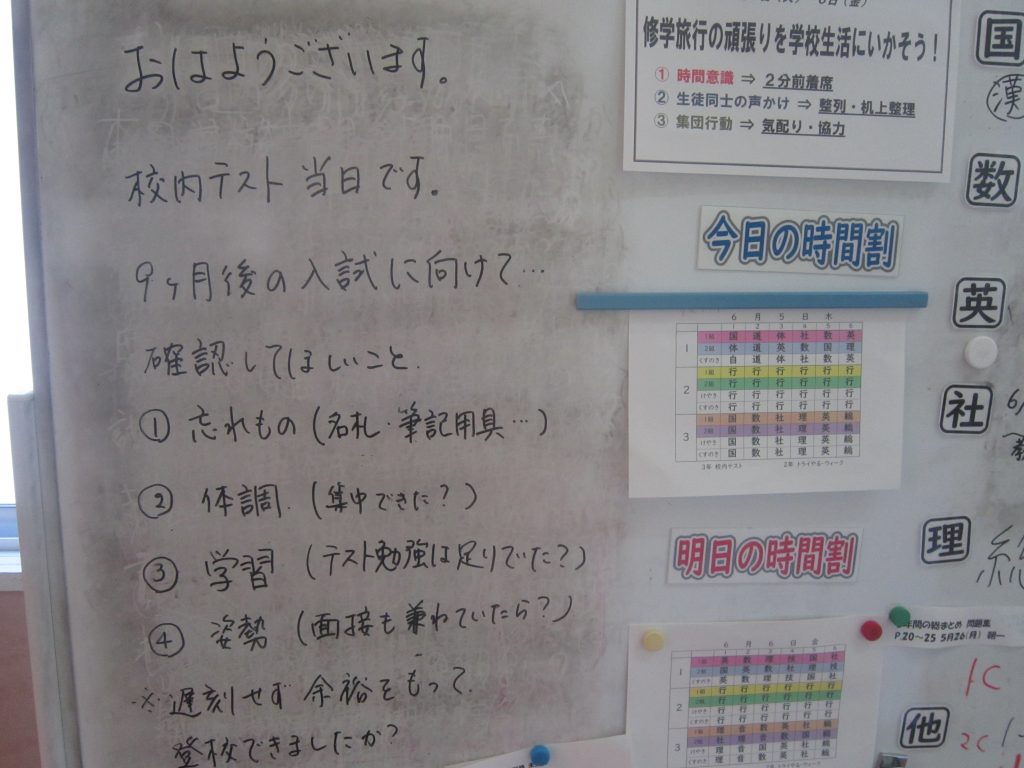 おはようございます。
校内テスト当日です。
9ヶ月後の入試に向けて…
確認してほしいこと.
① 忘れもの(名札・筆記用具…)
② 体調.(集中できた?)
③ 学習 (テスト勉強は足りていた?)
④ 姿勢 (面接も兼ねていたら?)
※遅刻せず余裕をもって、
登校できましたか?
修学旅行の頑張りを学校生活にいかそう!
① 時間意識 ⇒ 2分前着席
② 生徒同士の声かけ ⇒ 整列・机上整理
③ 集団行動 ⇒ 気配り・協力
今日の時間割
6 月 5 日 木
1 2 3 4 5 6
1 1組 国 道 体 社 数 英
2組 体 道 英 数 国 理
くすのき 自 道 体 社 数 英
2 1組 行 行 行 行 行 行
2組 行 行 行 行 行 行
けやき 行 行 行 行 行 行
くすのき 行 行 行 行 行 行
3 1組 国 数 社 理 英 総
2組 国 数 社 理 英 総
けやき 国 数 社 理 英 総
くすのき 国 数 社 理 英 総
3年 校内テスト 2年 トライやる・ウィーク
明日の時間割
6 月 6 日 金
1 2 3 4 5 6
1 1組 英 数 理 技 国 社
2組 国 英 数 理 社 技
くすのき 英 数 理 技 国 社
2 1組 行 行 行 行 行 行
2組 行 行 行 行 行 行
けやき 行 行 行 行 行 行
くすのき 行 行 行 行 行 行
3
けやき
くすのき
国
漢
数
英
社
6/
理
総
年間の総まとめ 問題集
P.20~25 5月26(月) 朝
1C
他
2C